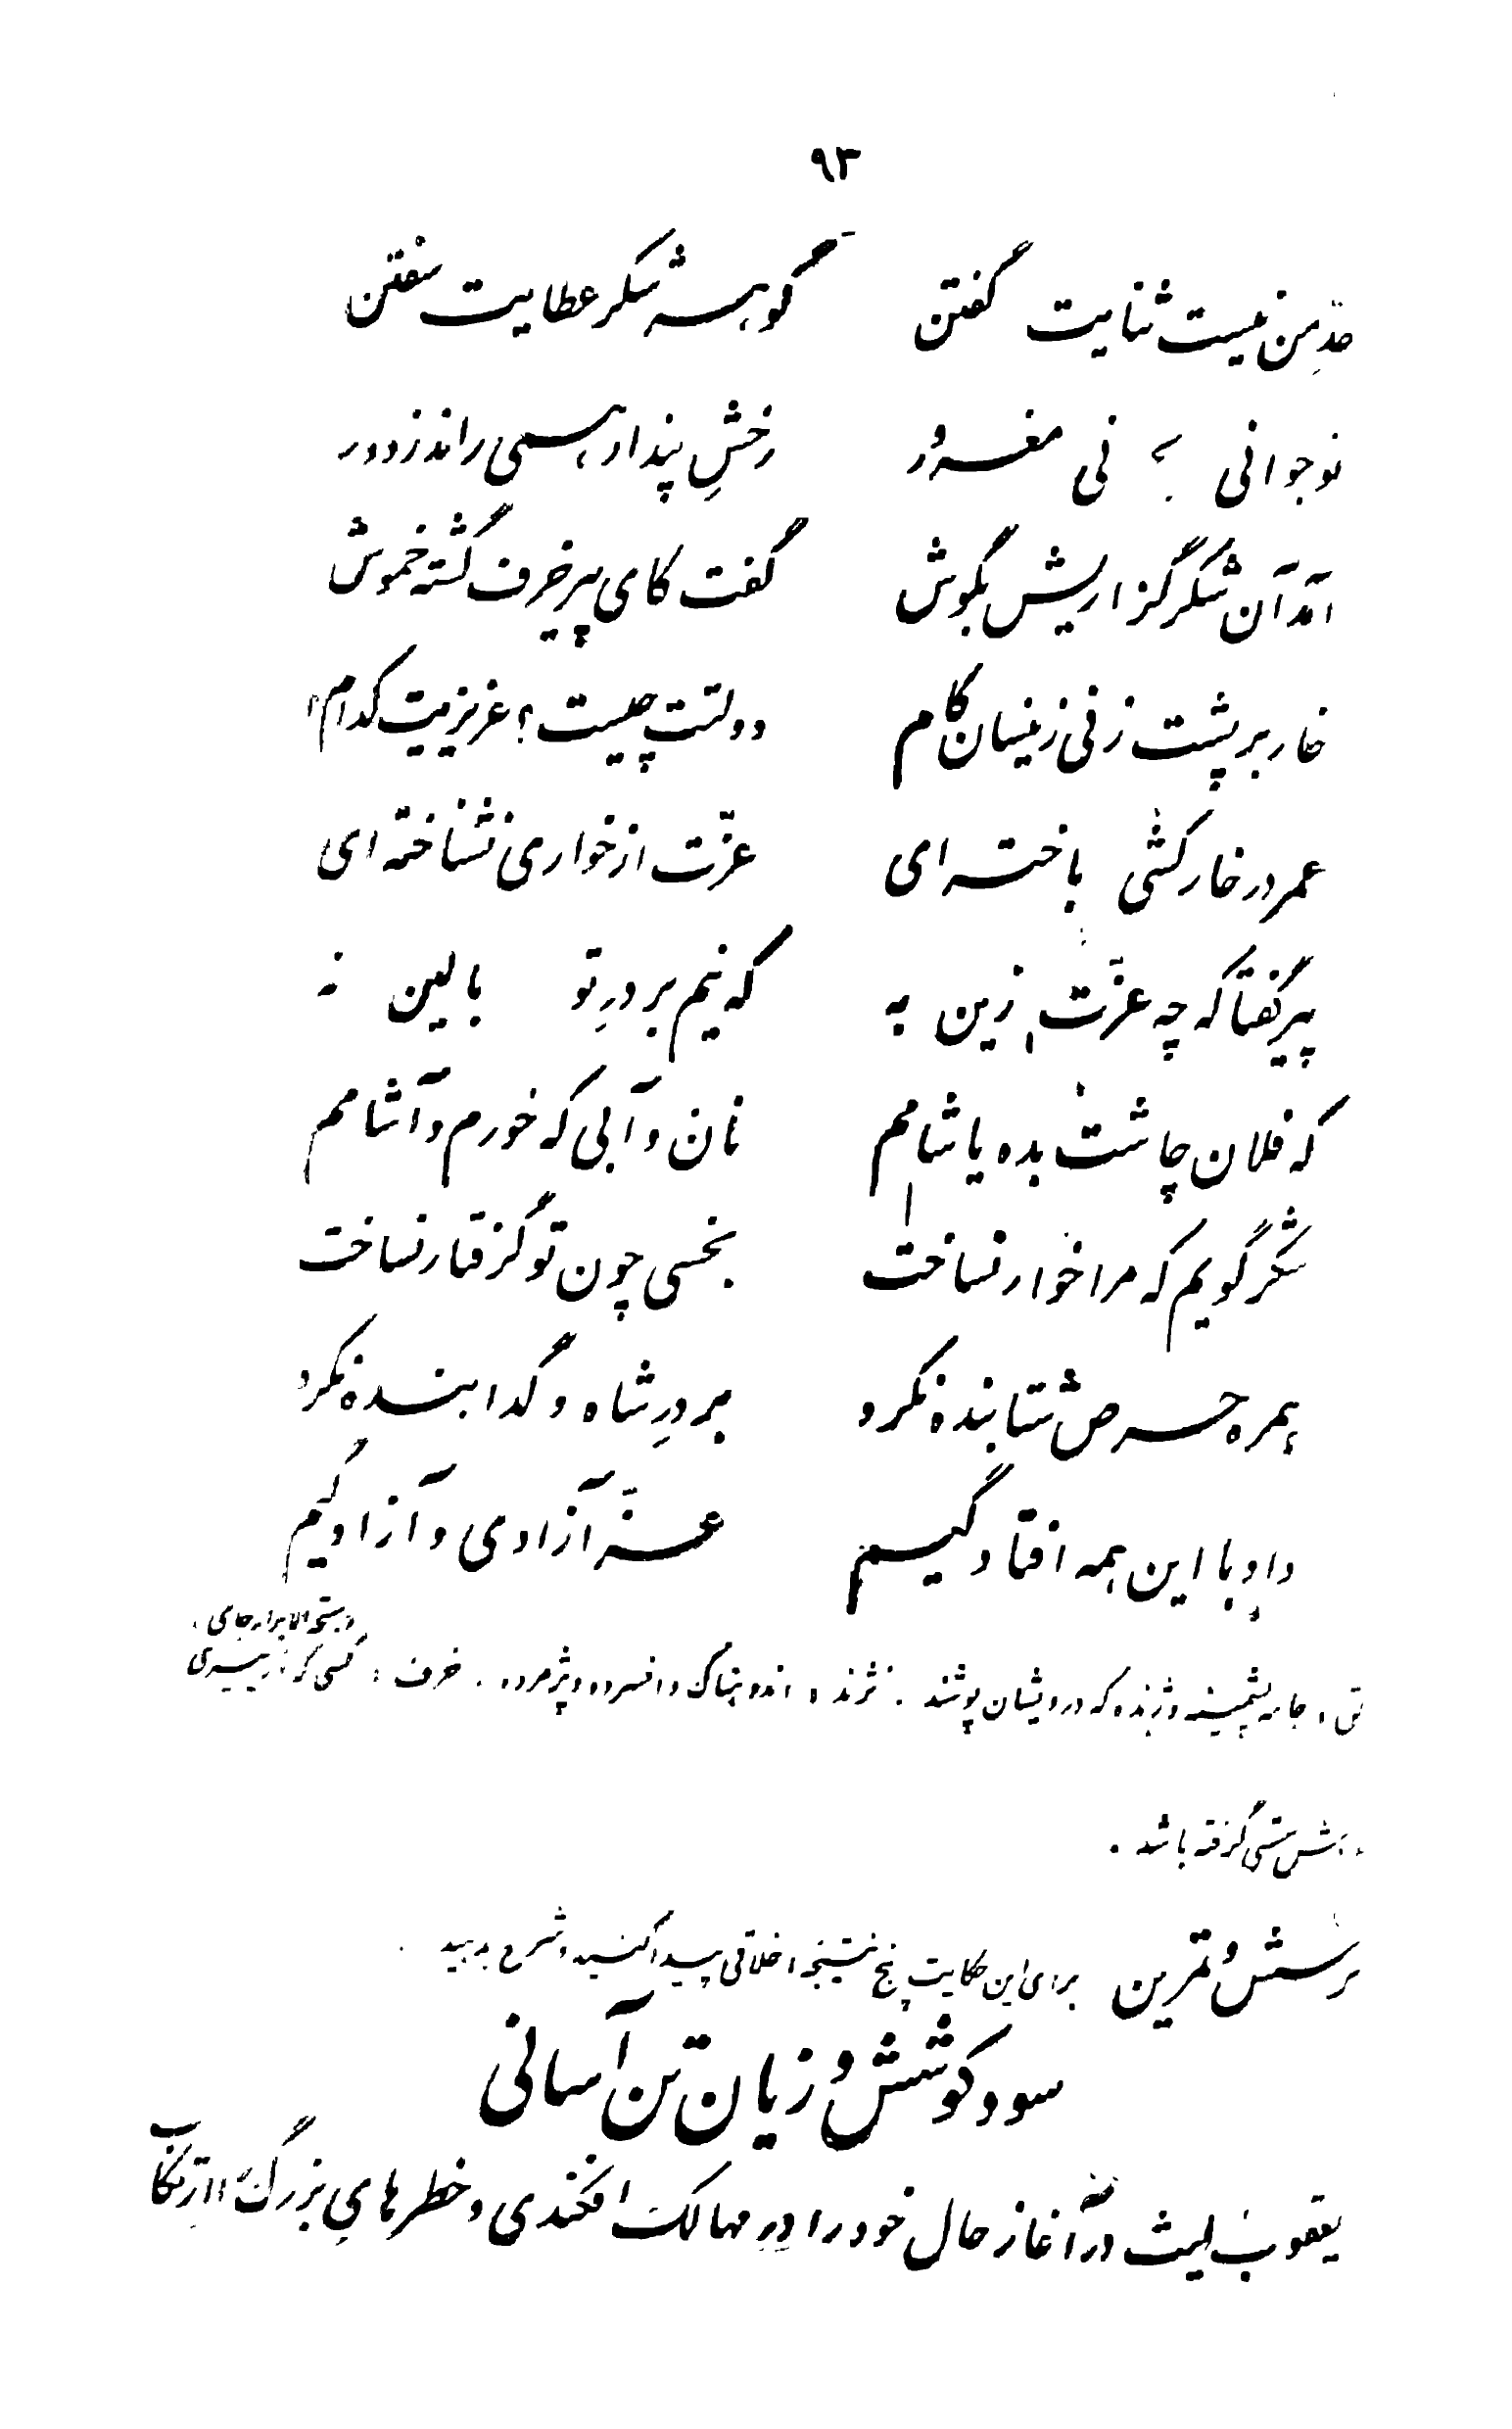 ۹۳
حدِّ من نیست ثنایت گفتن گوهر شکر عطایت سفتن
نوجوانی به جوانی مغرور رخشِ پندار همی راند ز دور
آمد آن شکرگزاریش بگوش گفت کای پیر خرف گشته خموش
خار بر پشت زنی زینسان گام دولتت چیست؟ عزیزیت کدام؟
عمر در خارکشی باخته‌ای عزّت از خواری نشناخته‌ای
پیر گفتا که چه عزّت زین به که نیم بر درِ تو بالین نه
که فلان چاشت بده یا شامم نان و آبی که خورم و آشامم
شکر گویم که مرا خوار نساخت بخسی چون تو گرفتار نساخت
بره حرص شتابنده نکرد بر درِ شاه و گدا بنده نکرد
داد با این همه افتادگیم عزِّ آزادی و آزادگیم
سبحةالابرار جامی.
دلق: جامه پشمینه و ژنده که درویشان پوشند. نژند: اندوهناک و افسرده و پژمرده. خرف: کسی که از پیری
هوشش سستی گرفته باشد.
پرسش و تمرین برای این حکایت پنج نتیجه اخلاقی پیدا کنید و شرح بدهید.
سود کوشش و زیان تن آسانی
یعقوب لیث در آغاز حال خود را در مهالک افکندی و خطرهایِ بزرگ را ارتکاب